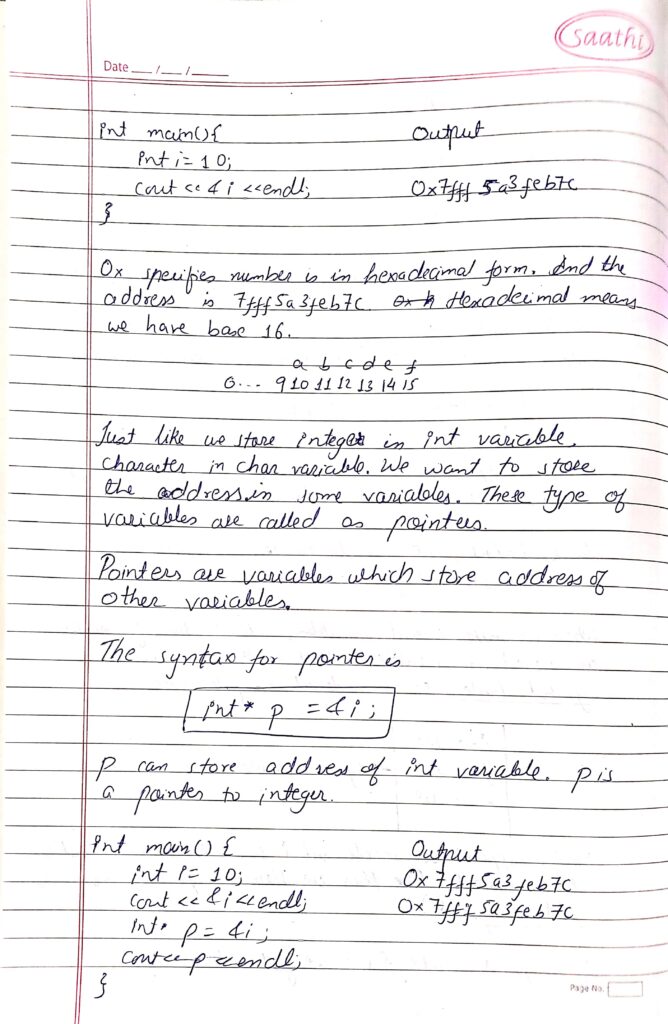 Saathi
Date __/__/____
int main(){ Output
int i = 10;
cout << &i << endl; 0x7fff5a3feb7c
}
0x specifies number is in hexadecimal form. And the
address is 7fff5a3feb7c. Hexadecimal means
we have base 16.
a b c d e f
0... 9 10 11 12 13 14 15
Just like we store integer in int variable,
character in char variable. We want to store
the address in some variables. These type of
variables are called as pointers.
Pointers are variables which store address of
other variables.
The syntax for pointer is
int* p = &i;
P can store address of int variable. p is
a pointer to integer.
int main() { Output
int i = 10; 0x7fff5a3feb7c
cout << &i << endl; 0x7fff5a3feb7c
int* p = &i;
cout << p << endl;
}
Page No.